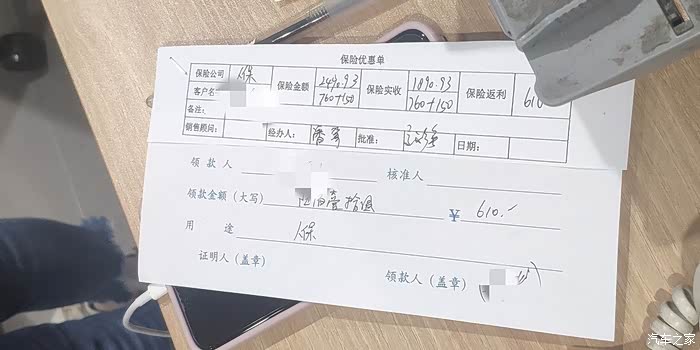 保险优惠单
保险公司 人保 保险金额 2490.93 760+150 保险实收 1890.93 760+150 保险返利 610
客户名
备注:
销售顾问: 经办人: 批准: 日期:
领款人 核准人
领款金额(大写) 陆佰壹拾圆 ¥ 610.-
用途 人保
证明人(盖章) 领款人(盖章)
汽车之家